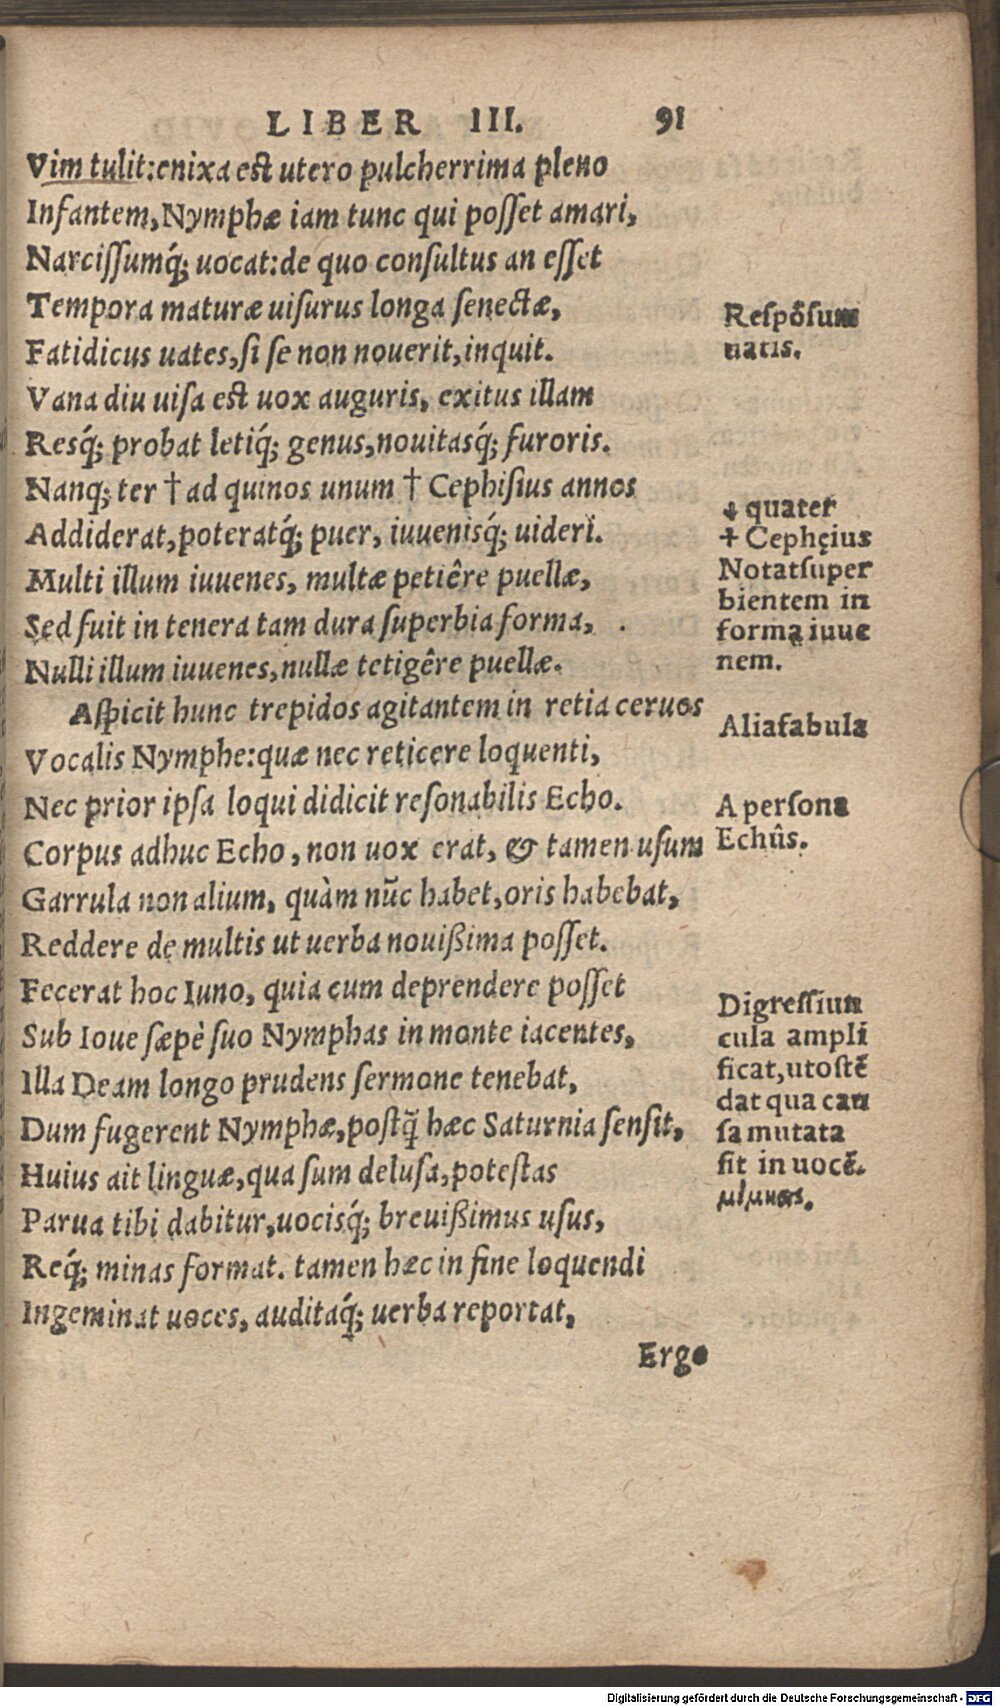 LIBER III. 91
Vim tulit:enixa est utero pulcherrima pleno
Infantem,Nymphæ iam tunc qui poſſet amari,
Narciſſumq́; uocat:de quo conſultus an eſſet
Tempora maturæ uiſurus longa ſenectæ,
Fatidicus uates,ſi ſe non nouerit,inquit.
Vana diu uiſa est uox auguris, exitus illam
Resq́; probat letiq́; genus,nouitasq́; furoris.
Nanq; ter † ad quinos unum † Cephiſius annos
Addiderat,poteratq́; puer, iuuenisq́; uideri.
Multi illum iuuenes, multæ petiêre puellæ,
Sed fuit in tenera tam dura ſuperbia forma,
Nulli illum iuuenes,nullæ tetigêre puellæ.
Aſpicit hunc trepidos agitantem in retia ceruos
Vocalis Nymphe:quæ nec reticere loquenti,
Nec prior ipſa loqui didicit reſonabilis Echo.
Corpus adhuc Echo, non uox erat, & tamen uſum
Garrula non alium, quàm nūc habet,oris habebat,
Reddere de multis ut uerba nouißima poſſet.
Fecerat hoc Iuno, quia cum deprendere poſſet
Sub Ioue ſæpè ſuo Nymphas in monte iacentes,
Illa Deam longo prudens ſermone tenebat,
Dum fugerent Nymphæ,poſtq̃ hæc Saturnia ſenſit,
Huius ait linguæ,qua ſum deluſa,poteſtas
Parua tibi dabitur,uocisq́; breuißimus uſus,
Req́; minas format. tamen hæc in fine loquendi
Ingeminat uoces, auditaq́; uerba reportat,
Ergo
Reſpōſum
uatis.
† quater
† Cephęius
Notatſuper
bientem in
forma iuue
nem.
Aliafabula
A perſona
Echûs.
Digreſſiun
cula ampli
ficat,utoſtē
dat qua cau
ſa mutata
ſit in uocē.
μίμησις.
Digitalisierung gefördert durch die Deutsche Forschungsgemeinschaft - DFG